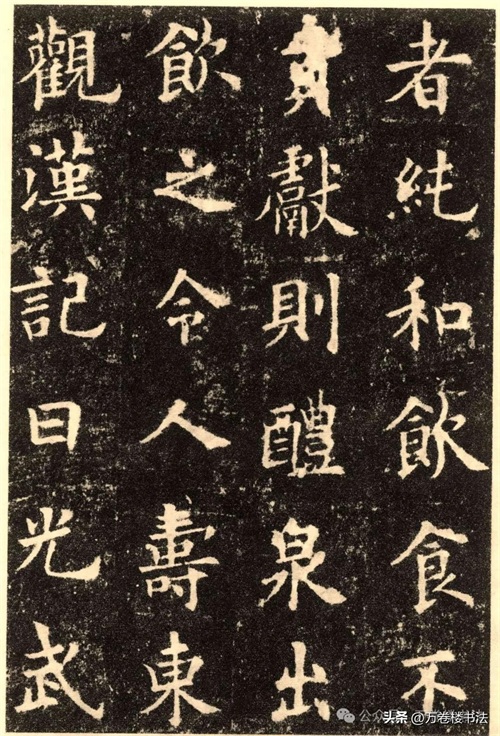 者純和飲食不
貢獻則醴泉出
飲之令人壽東
觀漢記曰光武
头条 @万卷楼书法